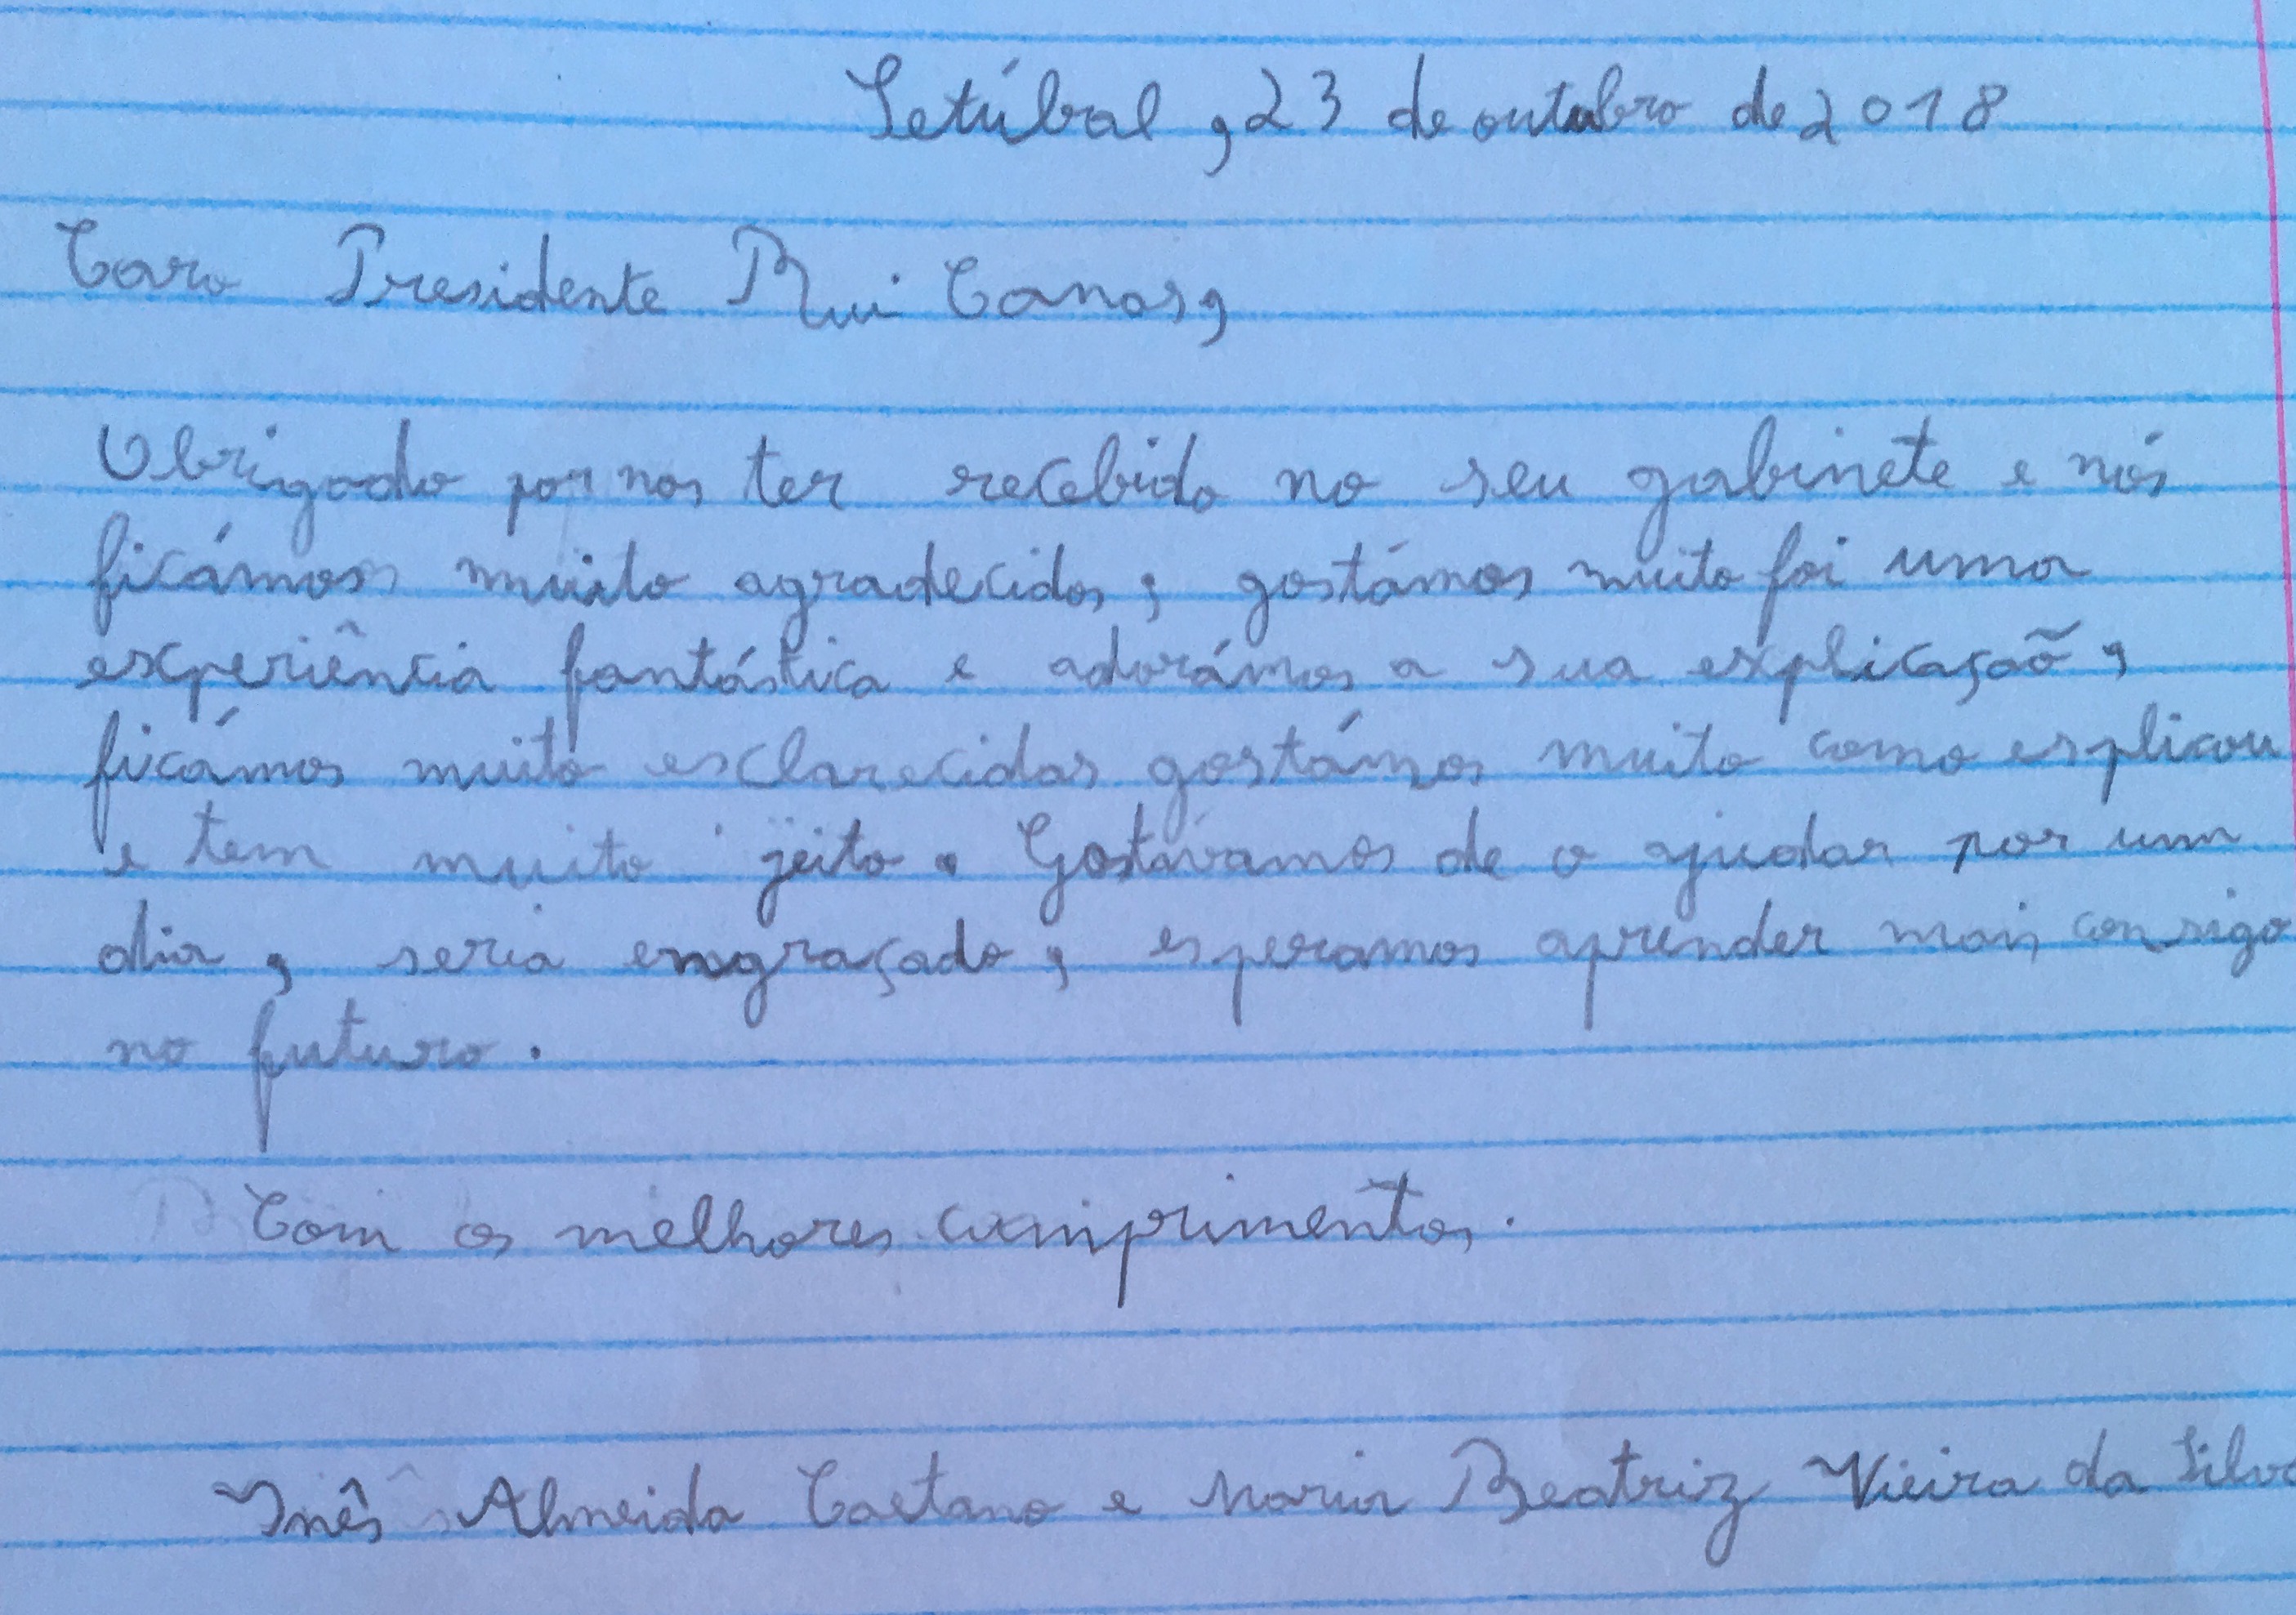 Setúbal, 23 de outubro de 2018
Caro Presidente Rui Canas,
Obrigado por nos ter recebido no seu gabinete e nós
ficámos muito agradecidos, gostámos muito foi uma
experiência fantástica e adorámos a sua explicaçaõ,
ficámos muito esclarecidas gostámos muito como esplicou
e tem muito jeito. Gostávamos de o ajudar por um
dia, seria engraçado, esperamos aprender mais consigo
no futuro.
Com os melhores cumprimentos.
Inês Almeida Caetano e Maria Beatriz Vieira da Silva